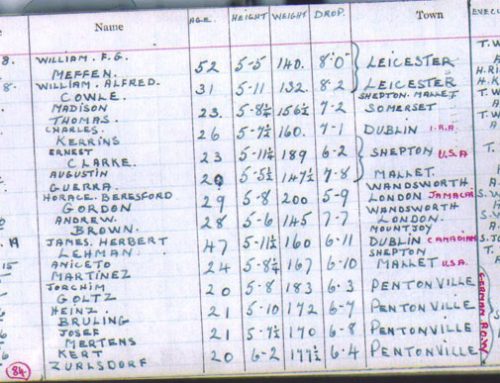 Name AGE. HEIGHT WEIGHT DROP. Town
8. WILLIAM. F.G.
MEFFEN. 52 5-5 140. 8'0" LEICESTER T.W
8. WILLIAM. ALFRED.
COWLE. 31 5-11 132. 8-2 LEICESTER
MADISON SHEPTON. MALLET
THOMAS. 23. 5-8¼ 156½ 7-2 SOMERSET
CHARLES.
KERRINS 26 5-7½ 160. 7-1 DUBLIN I.R.A
ERNEST
CLARKE. 23 5-11¼ 189 6-2 SHEPTON U.S.A
AUGUSTIN
GUERRA. 20 5-5½ 147½ 7-8 MALLET.
HORACE. BERESFORD WANDSWORTH
GORDON 29 5-8 200 5-9 LONDON JAMACIAN
ANDREW. WANDSWORTH
BROWN. 28 5-6 145 7-7 LONDON.
JAMES. HERBERT MOUNTJOY
LEHMAN. 47 5-11½ 160 6-11 DUBLIN CANADIAN
15 ANICETO SHEPTON
MARTINEZ 24 5-8¼ 167 6-10 MALLET U.S.A.
JORCHIM
GOLTZ 20 5-8 183 6-3 PENTONVILLE
HEINZ.
BRULING 21 5-10 172 6-7 PENTONVILLE
JOSEF
MERTENS 21 5-7½ 170 6-8 PENTONVILLE
KERT
ZURLSDORF 20 6-2 177½ 6-4 PENTONVILLE
GERMAN P.O.W
84